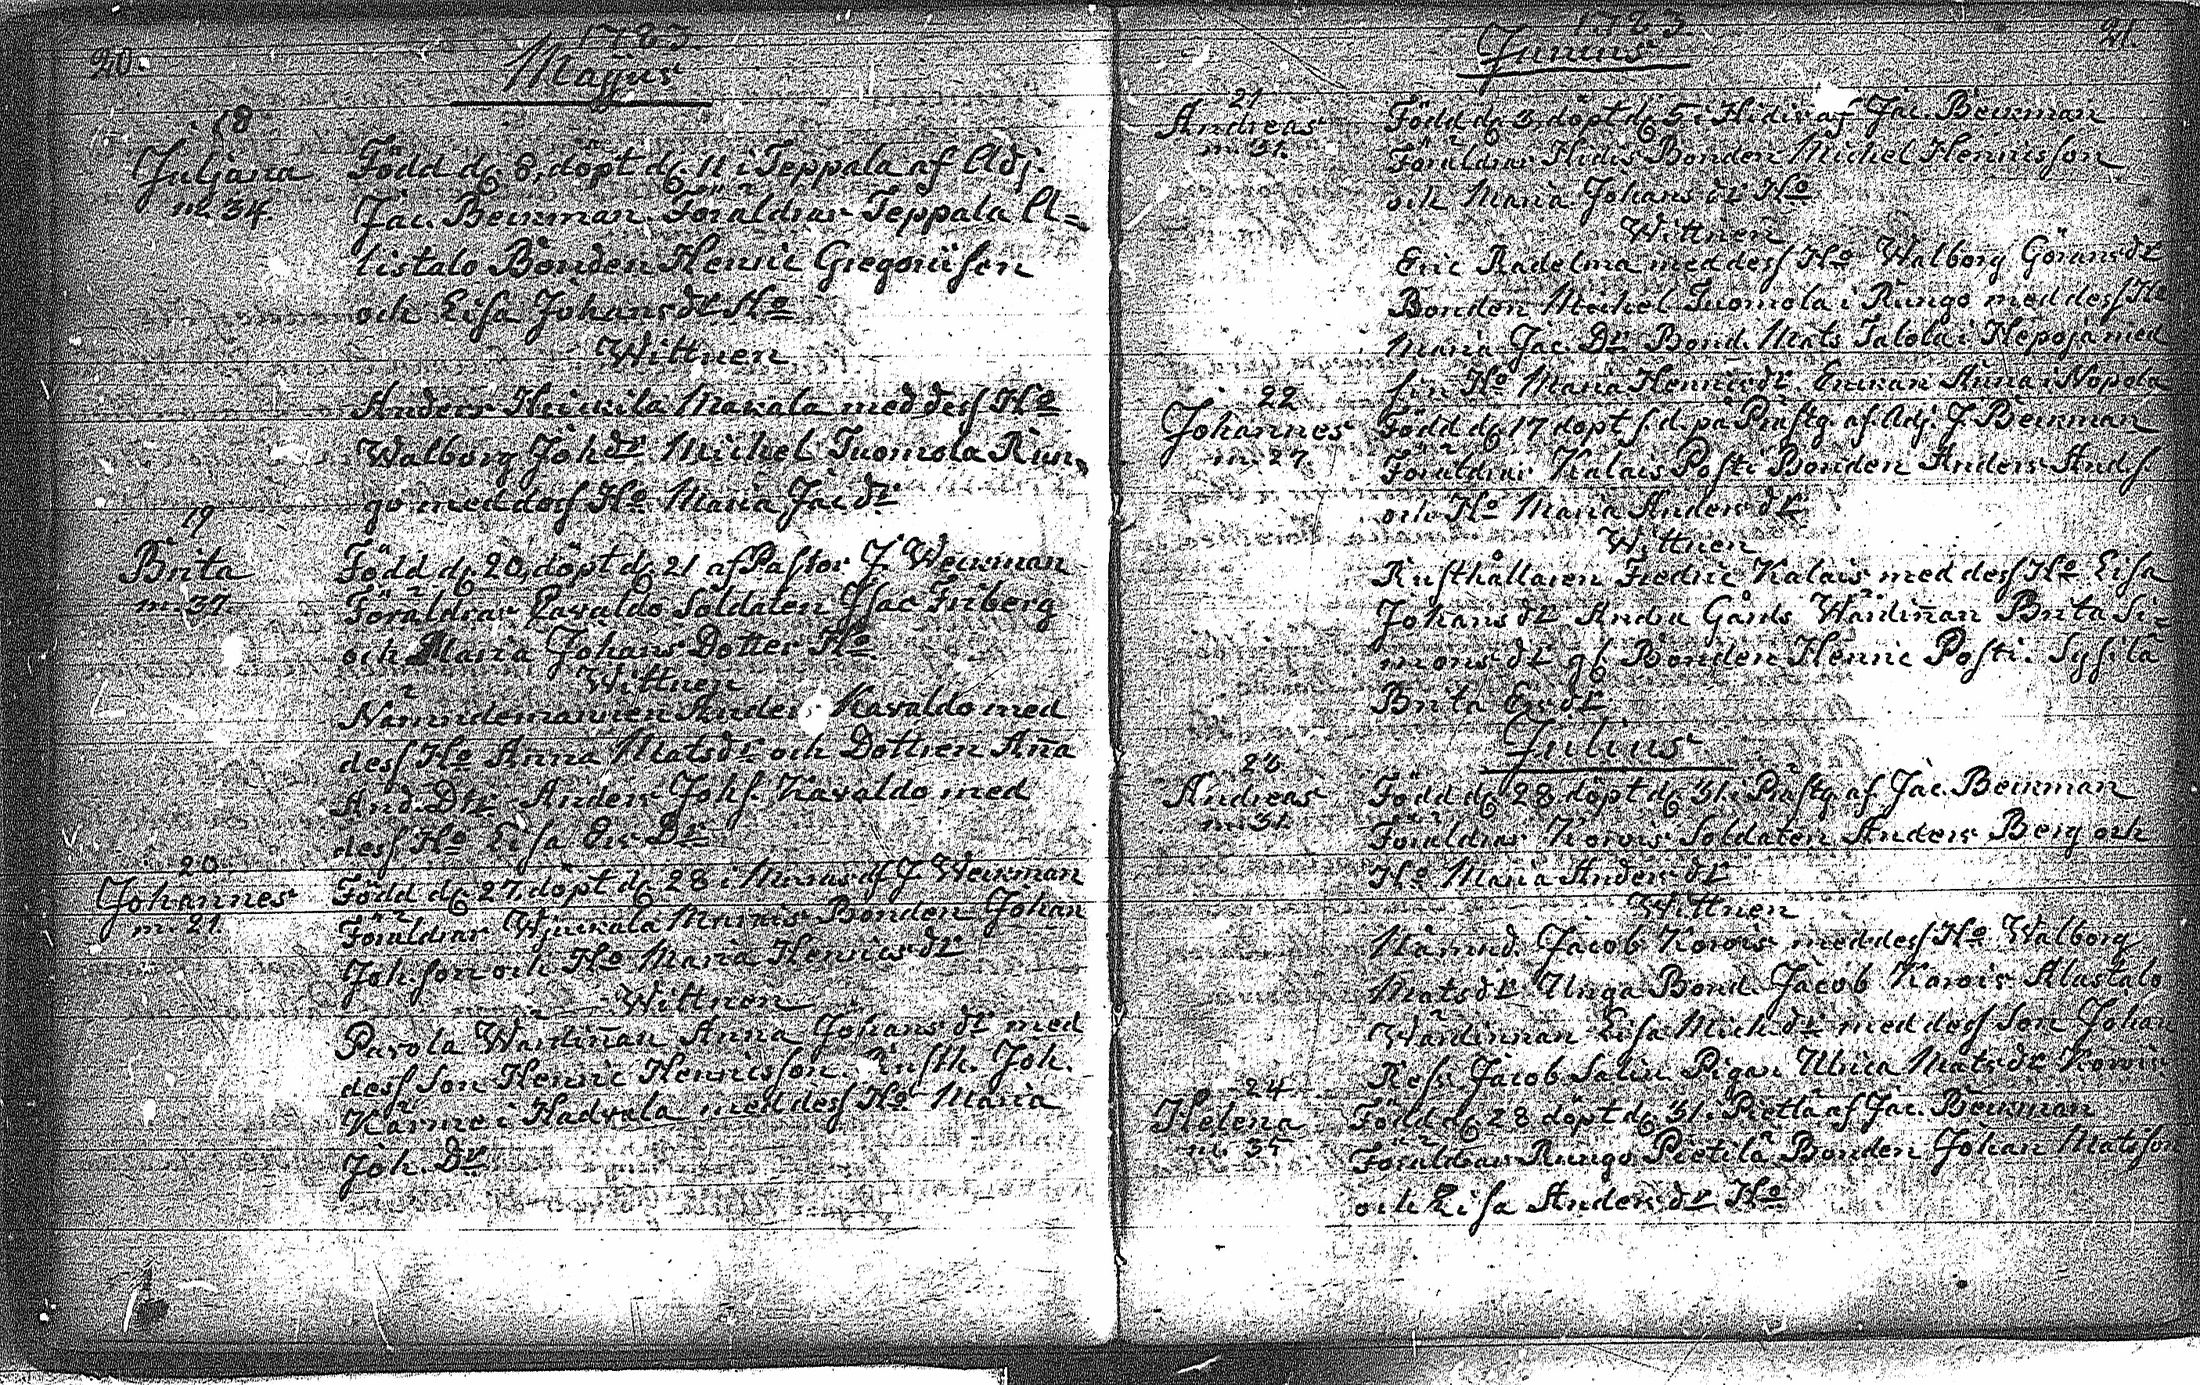 20.
1783.
Majus
18
Juliana
m. 34.
Född d. 8, döpt d. 11 i Teppala af Adj.
Jac. Beckman. Föräldrar Teppala A-
listalo Bonden Henric Gregorisson
och Lisa Johansdr Ho
Wittnen
Anders Heickilä Makala med dess Ho
Walborg Johdr Michel Tuomola Run-
go med dess Ho Maria Jacdr
19
Brita
m. 37.
Född d. 20, döpt d. 21 af Pastor J. Weckman
Föräldrar Kavaldo Soldaten Isac Friberg
och Maria Johans Dotter Ho
Wittnen
Nämndemannen Anders Kavaldo med
dess Ho Anna Matsdr och Dottren Aña
And. Dtr. Anders Johs. Kavaldo med
dess Ho Lisa Ers Dr
20
Johannes
m. 21
Född d. 27, döpt d. 28 i af J Weckman
Föräldrar Bonden Johan
Joh.son och Ho Maria Henricsdr
Wittnen
Pavola Wärdiñan Anna Johansdr med
dess Son Henric Henricsson. Rusth. Joh.
Kärme i Hadvala med dess Ho Maria
Joh. Dr
21.
1783.
Junius
21
Andreas
m. 31.
Född d. 3, döpt d. 5 i Hidis af Jac. Beckman
Föräldrar Hidis Bonden Michel Henricsson
och Maria Johansdr Ho
Wittnen
Eric Radelma med dess Ho Walborg Göransdr
Bonden Michel Tuomola i Rungo med dess Ho
Maria Jac. Dr Bond. Mats Talola i Nepoja med
sin Ho Maria Henricsdr Enkan Anna i Nopola
22
Johannes
m. 27.
Född d. 17 döpt s. d. på Prästg. af Adj. J. Beckman
Föräldrar Kalais Posti Bonden Anders Ands.
och Ho Maria Andersdr
Wittnen
Rusthållaren Fredric Kalais med dess Ho Lisa
Johansdr Andra Gårds Wärdiñan Brita Si-
monsdr gl. Bonden Henric Posti. Sysilä
Brita Ersdr
Julius
23
Andreas
m. 31.
Född d. 28 döpt d. 31 i Prästg. af Jac. Beckman
Föräldrar Korvis Soldaten Anders Berg och
Ho Maria Andersdr
Wittnen
Nämnd. Jacob Korois med dess Ho Walborg
Matsdr Unga Bond. Jacob Korois Alastalo
Wärdinnan Lisa Mich.dr med dess Son Johan
Res. Jacob Salin Pigan Ulrica Matsdr Korois
24
Helena
m. 35
Född d. 28 döpt d. 31 i Pietlä af Jac. Beckman
Föräldrar Rungo Pietilä Bonden Johan Matsson
och Lisa Andersdr Ho